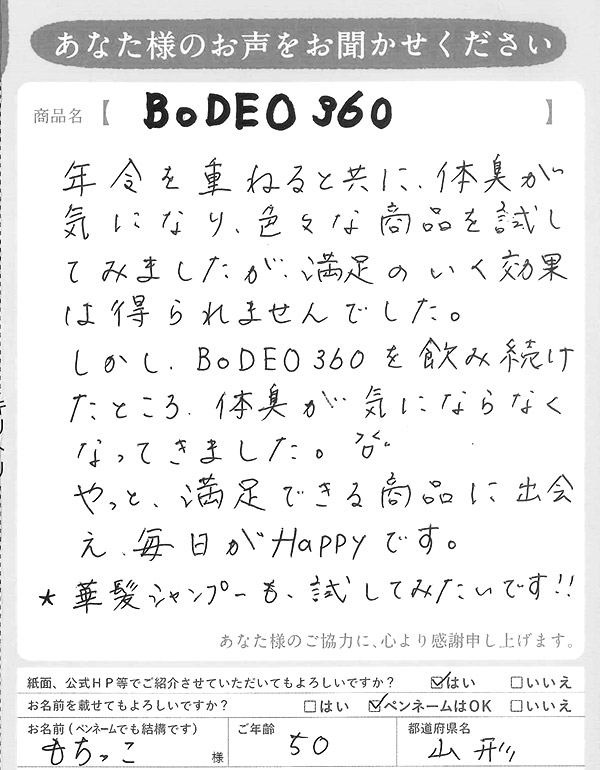 あなた様のお声をお聞かせください
商品名【 BoDEO 360 】
年令を重ねると共に、体臭が
気になり、色々な商品を試し
てみましたが、満足のいく効果
は得られませんでした。
しかし、BoDEO 360を飲み続け
たところ、体臭が気にならなく
なってきました。
やっと、満足できる商品に出会
え、毎日がHappyです。
★華髪シャンプーも、試してみたいです!!
あなた様のご協力に、心より感謝申し上げます。
紙面、公式HP等でご紹介させていただいてもよろしいですか? ☑はい □いいえ
お名前を載せてもよろしいですか? □はい ☑ペンネームはOK □いいえ
お名前(ペンネームでも結構です) ご年齢 都道府県名
もちっこ 様 50 山形